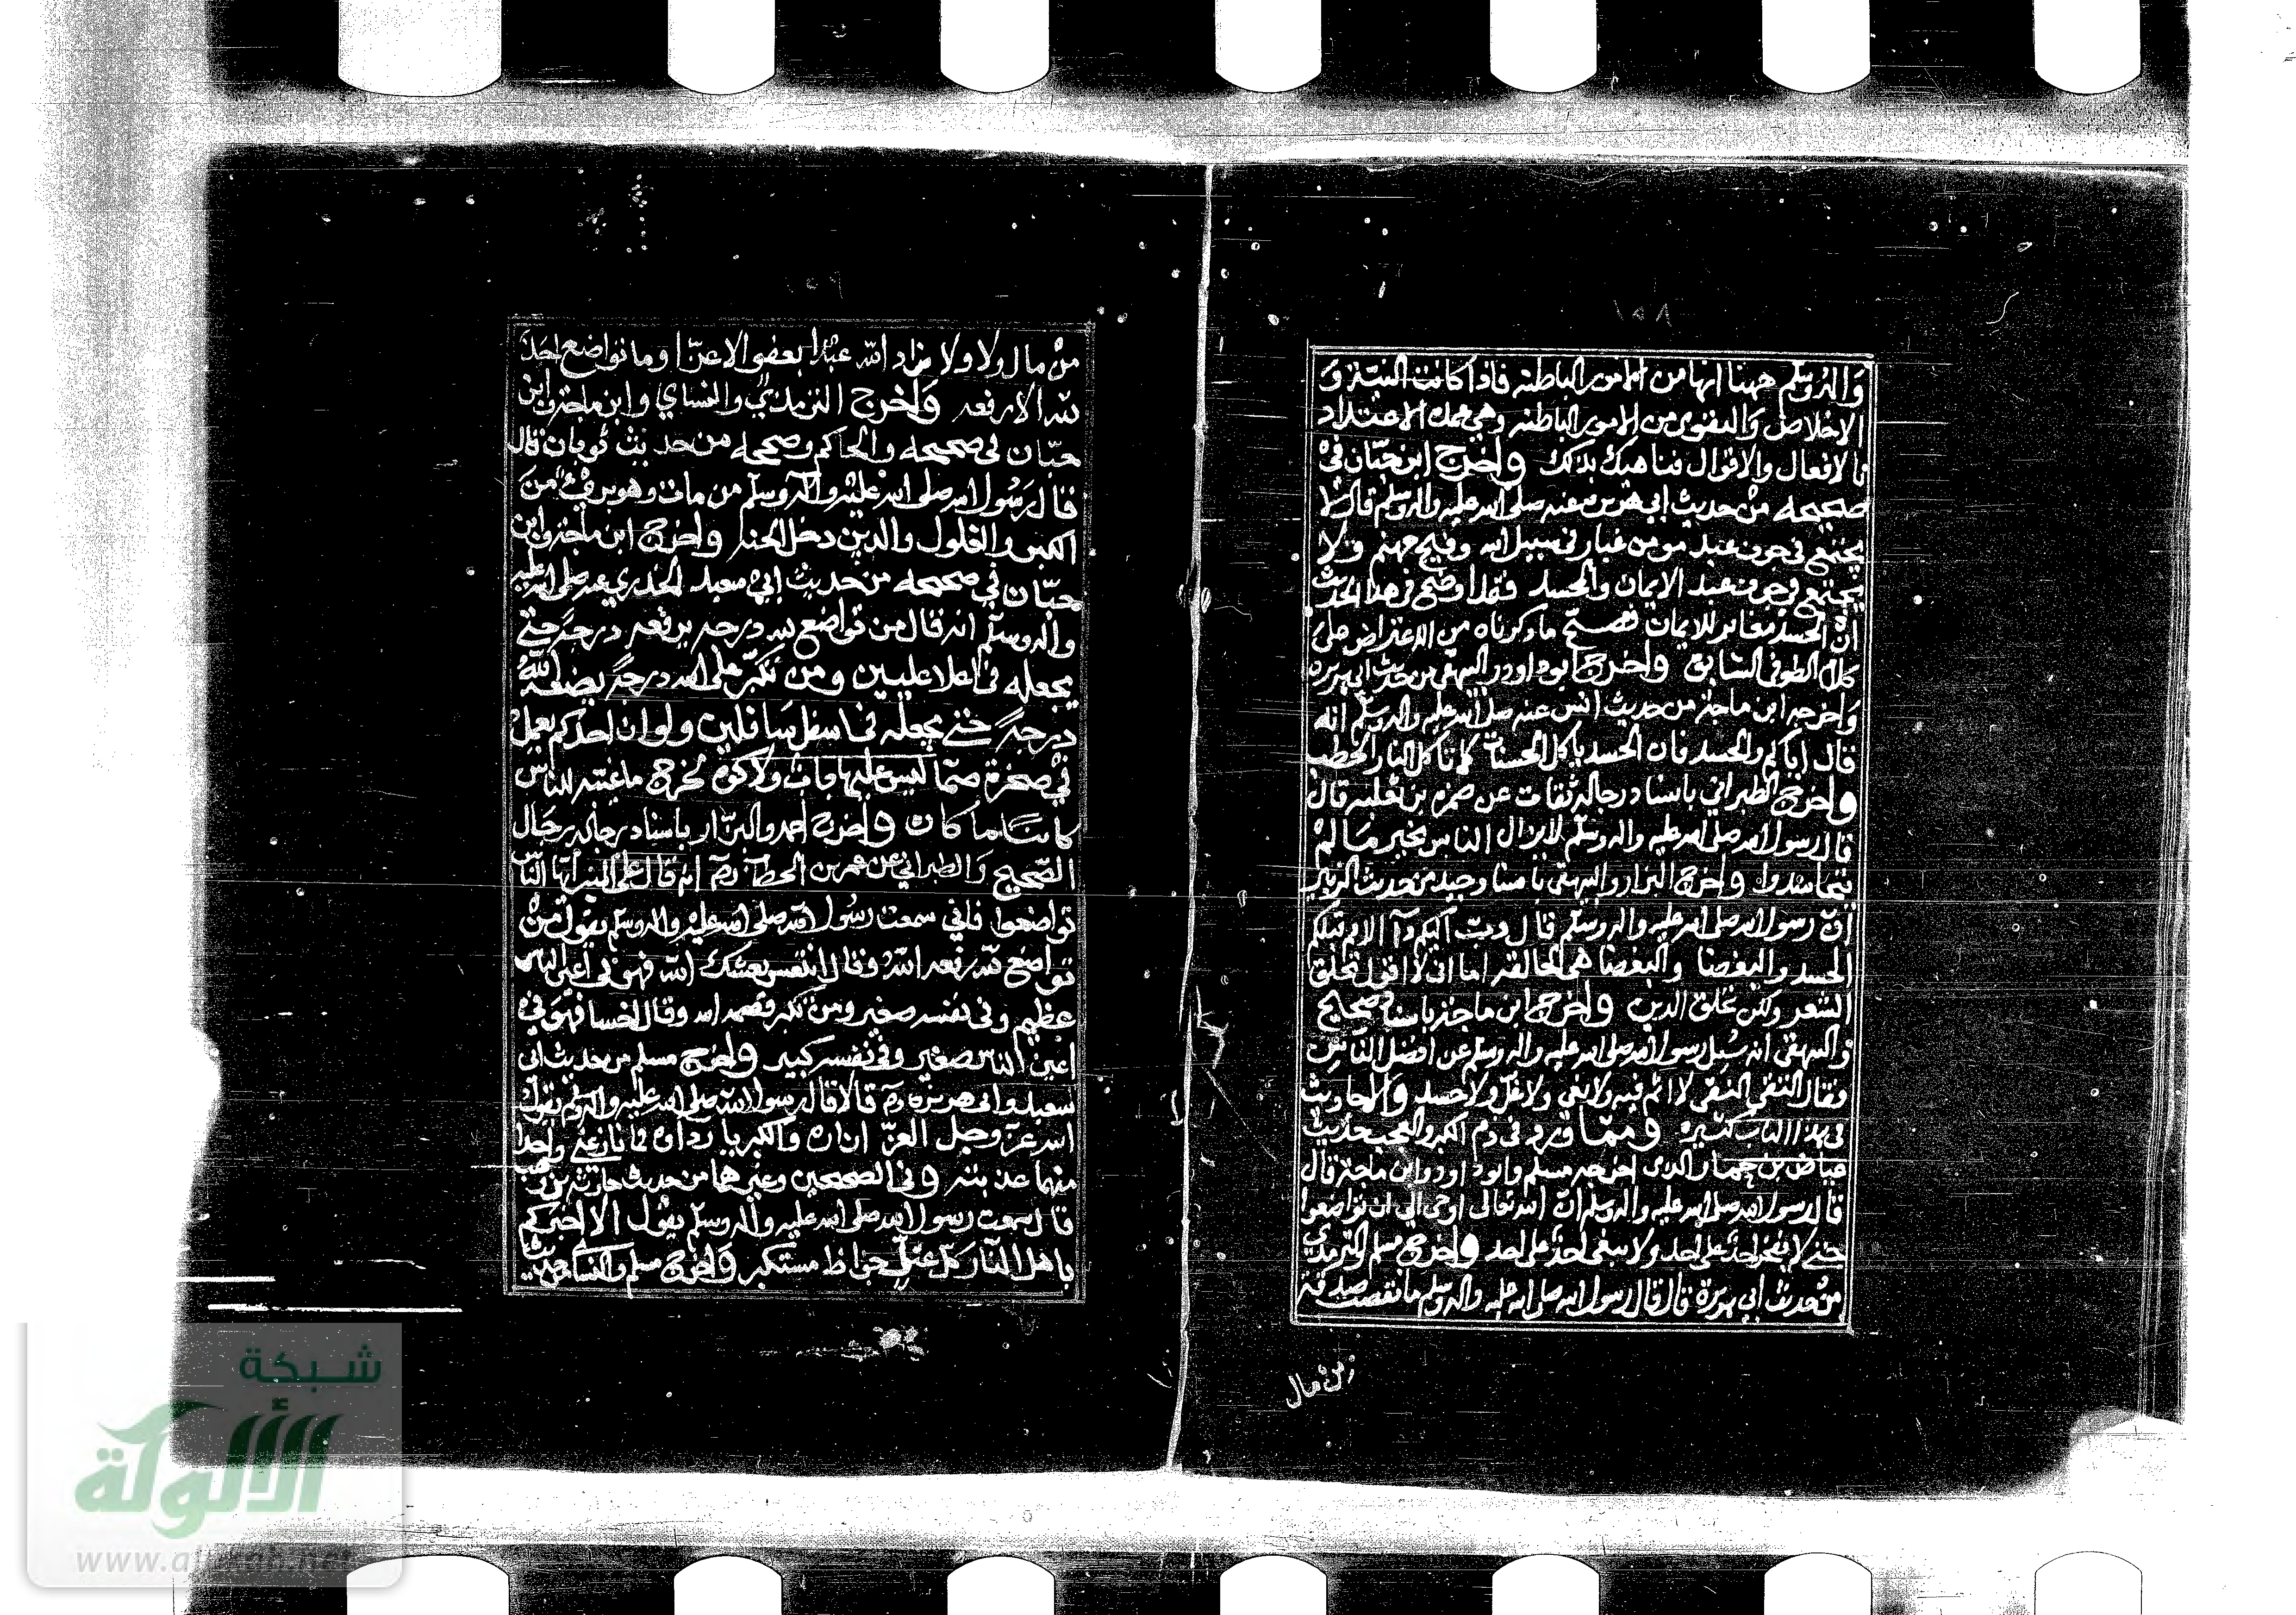 ١٥٨
وَالهِ وسلم ههنا انها من الامور الباطنه فاذا كانت النيّة وَ
الاخلاص وَالتقوى من الامور الباطنه وهي عمدة الاعتداد
بالافعال والاقوال فناهيك بذلك وأخرج ابن حبّان في
صحيحه من حديث ابي هريره عنه صلى الله عليه واله وسلم قال لا
يجتمع في جوف عبد مومن غبار في سبيل الله وفيح جهنم ولا
يجتمع في جوف عبد الايمان والحسد فقد اوضح في هذا الحديث
أنّ الحسد مغاير للايمان فصحّ ما ذكرناه من الاعتراض على
كلام الطوفي السّابق وأخرج ابو داود والبيهقي من حديث ابي هريره
وَاخرجه ابن ماجة من حديث انس عنه صلى الله عليه واله وسلم انه
قال إياكم والحسد فان الحسد يأكل الحسنات كما تاكل النار الحطب
وأخرج الطبراني باسناد رجاله ثقات عن ضمره بن ثعلبه قال
قال رسول الله صلى الله عليه واله وسلم لا يزال الناس بخير مَا لمْ
يتحاسدوا وأخرج البزار والبيهقي باسناد جيد من حديث الزبير
أنّ رسول الله صلى الله عليه واله وسلم قال دبّ اليكم دآ الامم قبلكم
الحسد والبغضا والبغضا هي الحالقه اما اني لا اقول تحلق
الشعر ولكن تحلق الدين وأخرج ابن ماجة باسناد صحيح
والبيهقي انه سُيل رسول الله صلى الله عليه واله وسلم عن افضل النّاس
فقال التقي النقي لا اثم فيه ولا بغي ولا غلّ ولا حسد والاحاديث
في هذا الباب كثيره وممّا ورد في ذم الكبر والعجب حديث
عياض بن حمار الذي اخرجه مسلم وابو داود وابن ماجة قال
قال رسول الله صلى الله عليه واله وسلم انّ الله تعالى اوحى الي ان تواضعوا
حتى لا يفخر احدٌ على احد ولا يبغي احدٌ على احد وأخرج مسلم والترمذي
من حديث أبي هريرة قال قال رسول الله صلى الله عليه واله وسلم ما نقصت صدقة
من مال
١٥٩
منْ مال ولا ولا زاد الله عبْدًا بعفو الا عزّا وما تواضع احدٌ
لله الا رفعه وَأخرج الترمذيّ والنساي وابن ماجة وابن
حبّان في صحيحه والحاكم وصححه من حديث ثوبان قال
قال رَسُول الله صلى الله عليْهِ واله وسلم من مات وهو بريءٌ منَ
الكبر والغلول والدين دخل الجنه وأخرج ابن ماجة وابن
حبّان في صحيحه من حديث ابي سعيد الخدري عنه صلى الله عليه
واله وسلم انه قال من تواضع لله درجه يرفعه درجةً حتى
يجعله في اعلا عليين ومن تكبّر على الله درجةً يضعه اللهُ
درجةً حتى يجعله في اسفل سَافلين ولو ان احدكم يعمل
في صخرة صمّا ليس عليها باب ولا كوة لخرج ما غيبه للناس
كاينا ما كان وأخرج احمد والبزّار باسناد رجاله رجال
الصّحيح وَالطبراني عن عمر بن الخطاب رم انه قال على المنبر أيّها النّاس
تواضعوا فاني سمعت رسُول الله صلى الله عليْهِ واله وسلم يقول منْ
تواضع لله رفعه اللهُ وقال انتعش نعشك الله فهو في اعين الناس
عظيم وفي نفسه صغير ومن تكبر قصمه الله وقال اخسا فهو في
اعين الناس صغير وفي نفسه كبير وأخرج مسلم من حديث ابي
سعيد وابي هريرة رم قالا قال رسول الله صلى الله عليه واله وسلم يقول
الله عزّ وجل العزّ ازاره والكبريا رداوه فمن نازعني واحدا
منهما عذبته وفي الصحيحين وغيرهما من حديث حارثه بن وهب
قال سمعت رسول الله صلى الله عليه واله وسلم يقُول الا اخبركم
باهل النّار كل عتلّ جواظ مستكبر وَأخرج مسلم والنساي من حديث
شبكة
الألوكة
www.alukah.net